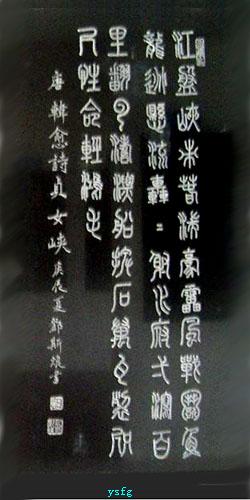 江盤峽束春湍豪靁風戰鬭魚
龍逃懸流轟〻射水府弌瀉百
里翻雲濤漂船擺石萬瓦裂咫
尺性命輕鴻毛
唐韓愈詩貞女峽辰夏鄧斯書
ysfg